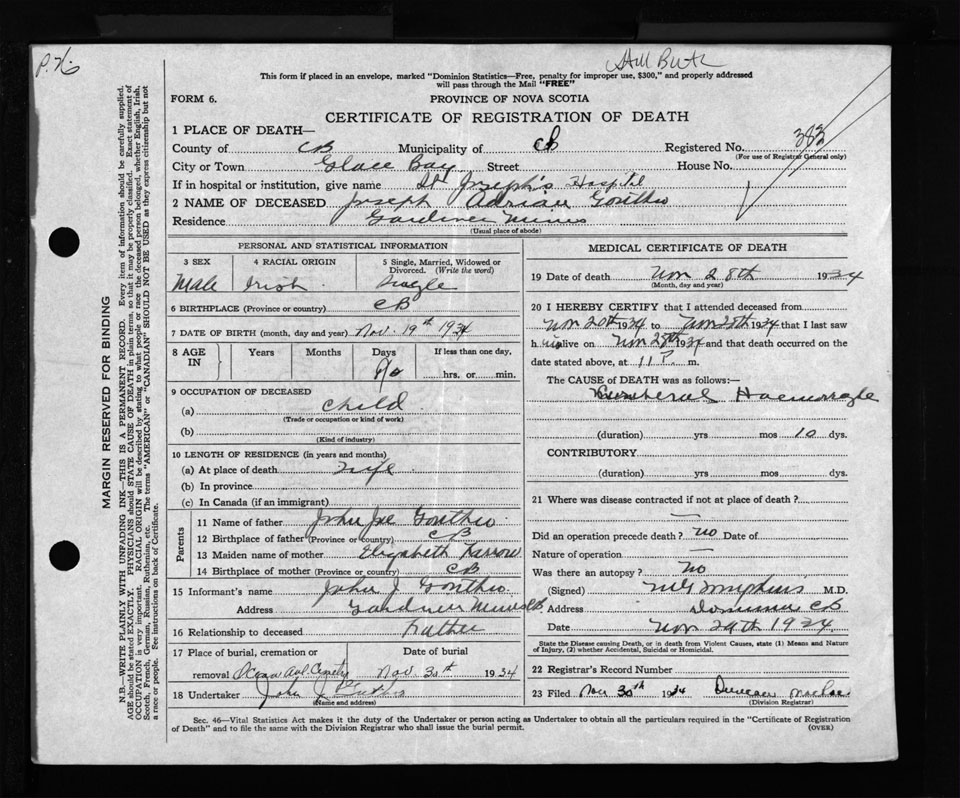 P.
Still Birth
This form if placed in an envelope, marked "Dominion Statistics—Free, penalty for improper use, $300," and properly addressed
will pass through the Mail "FREE"
FORM 6.
PROVINCE OF NOVA SCOTIA
CERTIFICATE OF REGISTRATION OF DEATH
1 PLACE OF DEATH—
383
County of CB Municipality of CB Registered No.
(For use of Registrar General only)
City or Town Glace Bay Street House No.
If in hospital or institution, give name St Joseph's Hospital
2 NAME OF DECEASED Joseph Adrian Gouthro
Residence Gardiner Mines
(Usual place of abode)
PERSONAL AND STATISTICAL INFORMATION
3 SEX
Male
4 RACIAL ORIGIN
Irish
5 Single, Married, Widowed or
Divorced. (Write the word)
Single
6 BIRTHPLACE (Province or country) CB
7 DATE OF BIRTH (month, day and year) Nov. 19th 1934
8 AGE
IN
Years Months Days If less than one day,
hrs. or min.
9 OCCUPATION OF DECEASED
(a) Child
(Trade or occupation or kind of work)
(b)
(Kind of industry)
10 LENGTH OF RESIDENCE (in years and months)
(a) At place of death Life
(b) In province
(c) In Canada (if an immigrant)
Parents
11 Name of father John Joe Gouthro
12 Birthplace of father (Province or country) CB
13 Maiden name of mother Elizabeth
14 Birthplace of mother (Province or country) CB
15 Informant's name John J. Gouthro
Address Gardiner Mines CB
16 Relationship to deceased Father
17 Place of burial, cremation or
removal
Date of burial
Nov. 30th 1934
18 Undertaker John J
(Name and address)
MEDICAL CERTIFICATE OF DEATH
19 Date of death Nov 28th 1934
(Month, day and year)
20 I HEREBY CERTIFY that I attended deceased from
Nov 20th 1934 to Nov 28th 1934 that I last saw
h im alive on Nov 28th 1934 and that death occurred on the
date stated above, at 11 P. m.
The CAUSE of DEATH was as follows:—
Haemorrage
(duration) yrs mos 10 dys.
CONTRIBUTORY
(duration) yrs mos dys.
21 Where was disease contracted if not at place of death?
—
Did an operation precede death? no Date of
Nature of operation —
Was there an autopsy? No
(Signed) M.D.
Address Dominion CB
Date Nov 29th 1934
State the Disease causing Death, or in death from Violent Causes, state (1) Means and Nature
of Injury, (2) whether Accidental, Suicidal or Homicidal.
22 Registrar's Record Number
23 Filed Nov 30th 1934 Duncan
(Division Registrar)
Sec. 46—Vital Statistics Act makes it the duty of the Undertaker or person acting as Undertaker to obtain all the particulars required in the "Certificate of Registration
of Death" and to file the same with the Division Registrar who shall issue the burial permit.
(OVER)
MARGIN RESERVED FOR BINDING
N.B.—WRITE PLAINLY WITH UNFADING INK—THIS IS A PERMANENT RECORD. Every item of information should be carefully supplied.
AGE should be stated EXACTLY. PHYSICIANS should STATE CAUSE OF DEATH in plain terms, so that it may be properly classified. Exact statement of
OCCUPATION is very important. RACIAL ORIGIN will be described by stating to what people or race the deceased person belonged, whether English, Irish,
Scotch, French, German, Russian, Ruthenian, etc. The terms "AMERICAN" or "CANADIAN" SHOULD NOT BE USED as they express citizenship but not
a race or people. See instructions on back of Certificate.